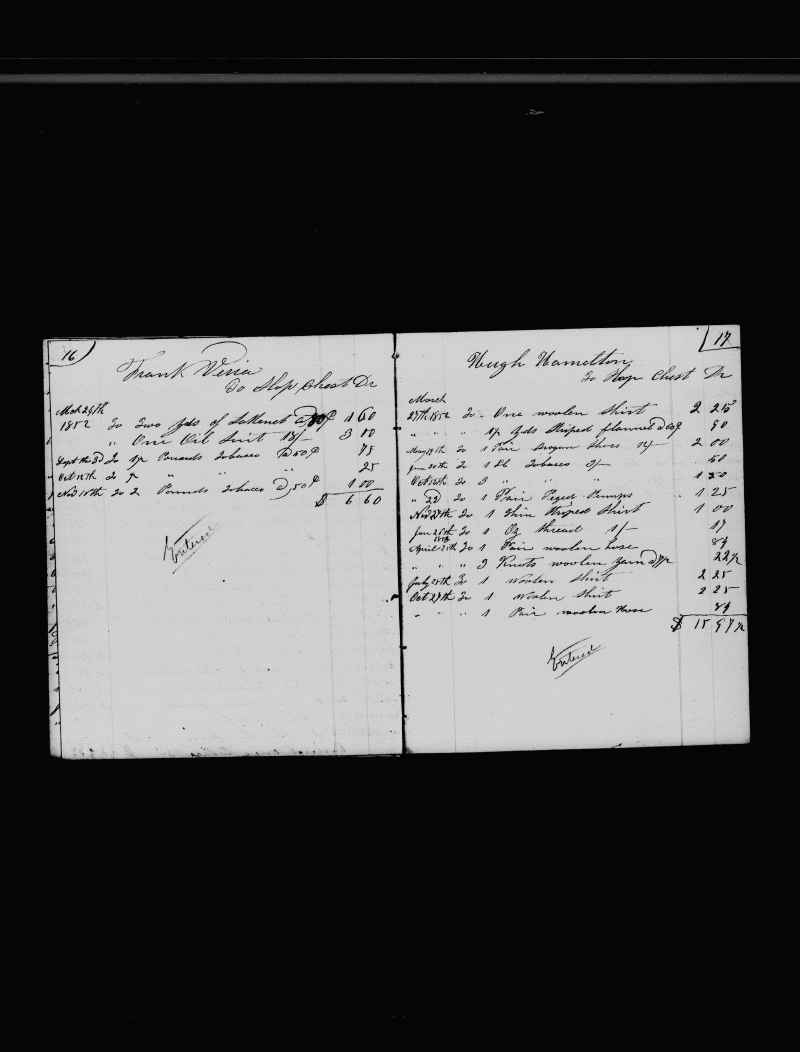 16
Frank
To Slop Chest Dr
Mch 27th
1852 To Two Yds of @ 80 1 60
" One Oil Suit 18/- 3 00
Sept the 3d To 1½ Pounds Tobacco @ 50 75
Oct 12th To ½ " " 25
Nov 10th To 2 Pounds Tobacco @ 50 1 00
$ 6 60
Entered
17
Hugh Hamelton
To Slop Chest Dr
March
27th 1852 To One woolen Shirt 2 25
" " " 1½ Yds Striped flannel @ 60 90
May 19th To 1 Pair Brogan Shoes 12/- 2 00
June 20th To 1 lb Tobacco 3/- 50
Oct 12th To 3 " " 1 50
" 22 To 1 Pair Peged Pumps 1 25
Nov 27th To 1 Thin Striped Shirt 1 00
Jan 26th To 1 Oz thread 1/- 17
1853
April 21th To 1 Pair woolen hose 84
" " " 3 Knots woolen yarn @ 7½ 22½
July 25th To 1 Woolen Shirt 2 25
Oct 27th To 1 Woolen Shirt 2 25
" " " 1 Pair woolen Hose 84
$ 15 97½
Entered